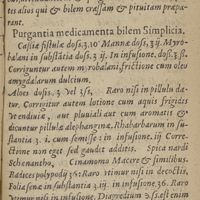 tes alios qui & bilem crassam & pituitam præpa-
rent.
Purgantia medicamenta bilem Simplicia.
Cassiæ fistulæ dos. ℥. 10 Mannæ dos. ʒ ij. Myro-
balani in substantia dosis ʒ ij. In infusione, dos. ℥ ß.
Corriguntur autem myrobalani, frictione cum oleo
amygdalarum dulcium.
Aloes dosis. ʒ vel ʒ ß, Raro nisi in pillulis da-
tur. Corrigitur autem lotione cum aquis frigidis
vt endiuiæ, aut pluuiali aut cum aromatis &
dicuntur pillulæ alephanginæ. Rhabarbarum in sub-
stantia ʒ. i. cum semisse: in infusione. iij Corre-
ctione non eget sed gaudet additis. Spica nardi
Schenantho, Cinamomo Macere & similibus.
Radices polypodij Raro vtimur nisi in decoctis,
Folia senæ in substantia ʒ. iij. in infusione. Raro
vtimur nisi in infusione. Diagredium